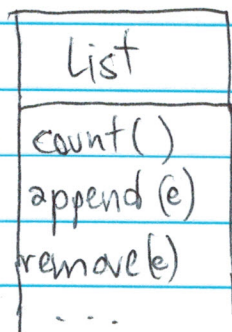 List
count()
append(e)
remove(e)
...